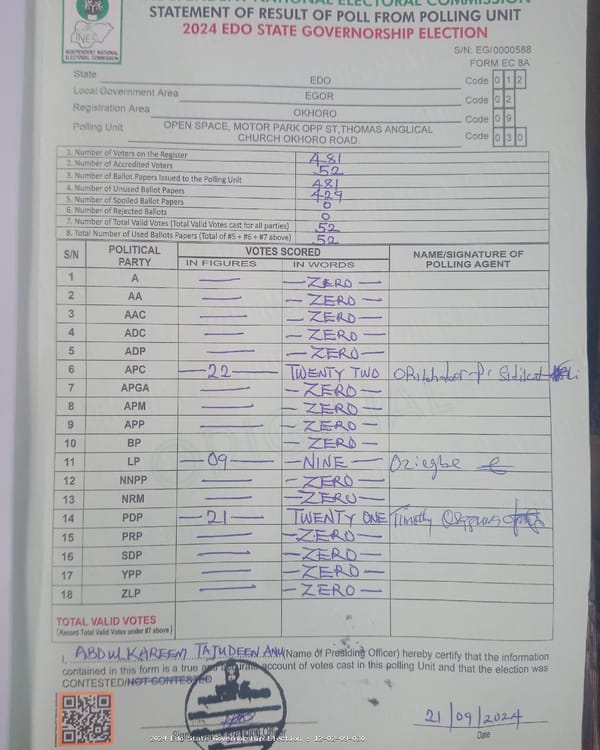 INDEPENDENT NATIONAL ELECTORAL COMMISSION
STATEMENT OF RESULT OF POLL FROM POLLING UNIT
2024 EDO STATE GOVERNORSHIP ELECTION
INEC
INDEPENDENT NATIONAL
ELECTORAL COMMISSION
S/N: EG/0000588
FORM EC 8A
State EDO Code 0 1 2
Local Government Area EGOR Code 0 2
Registration Area OKHORO Code 0 9
Polling Unit OPEN SPACE, MOTOR PARK OPP ST,THOMAS ANGLICAL
CHURCH OKHORO ROAD. Code 0 3 0
1. Number of Voters on the Register 481
2. Number of Accredited Voters 52
3. Number of Ballot Papers Issued to the Polling Unit 481
4. Number of Unused Ballot Papers 429
5. Number of Spoiled Ballot Papers 0
6. Number of Rejected Ballots 0
7. Number of Total Valid Votes (Total Valid Votes cast for all parties) 52
8. Total Number of Used Ballots Papers (Total of #5 + #6 + #7 above) 52
S/N POLITICAL PARTY VOTES SCORED NAME/SIGNATURE OF POLLING AGENT
IN FIGURES IN WORDS
1 A — —ZERO—
2 AA — —ZERO—
3 AAC — —ZERO—
4 ADC — —ZERO—
5 ADP — —ZERO—
6 APC —22— TWENTY TWO
7 APGA — —ZERO—
8 APM — —ZERO—
9 APP — —ZERO—
10 BP —ZERO—
11 LP —09— —NINE— Oziegbe
12 NNPP — —ZERO—
13 NRM — —ZERO—
14 PDP —21— TWENTY ONE Timothy
15 PRP — —ZERO—
16 SDP — —ZERO—
17 YPP — —ZERO—
18 ZLP — —ZERO—
TOTAL VALID VOTES
(Record Total Valid Votes under #7 above)
I, ABDULKAREEM TAJUDEEN (Name of Presiding Officer) hereby certify that the information
contained in this form is a true and accurate account of votes cast in this polling Unit and that the election was
CONTESTED/NOT CONTESTED
21/09/2024
Date
2024 Edo State Governorship Election - 12-02-09-030